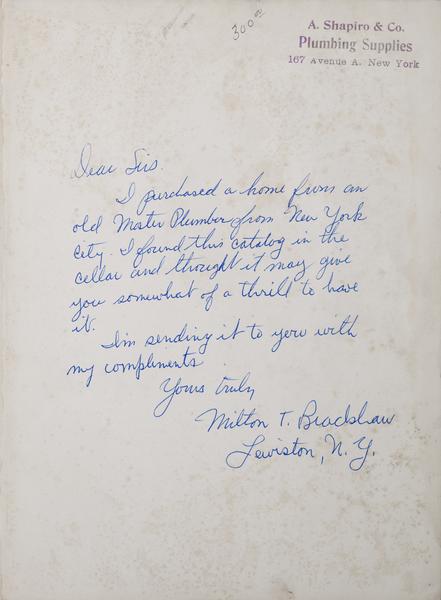 300.00
A. Shapiro & Co.
Plumbing Supplies
167 Avenue A. New York
Dear Sirs.
I purchased a home from an
old Master Plumber from New York
City. I found this catalog in the
cellar and thought it may give
you somewhat of a thrill to have
it.
I'm sending it to you with
my compliments.
Yours truly,
Milton T. Bradshaw
Lewiston, N.Y.